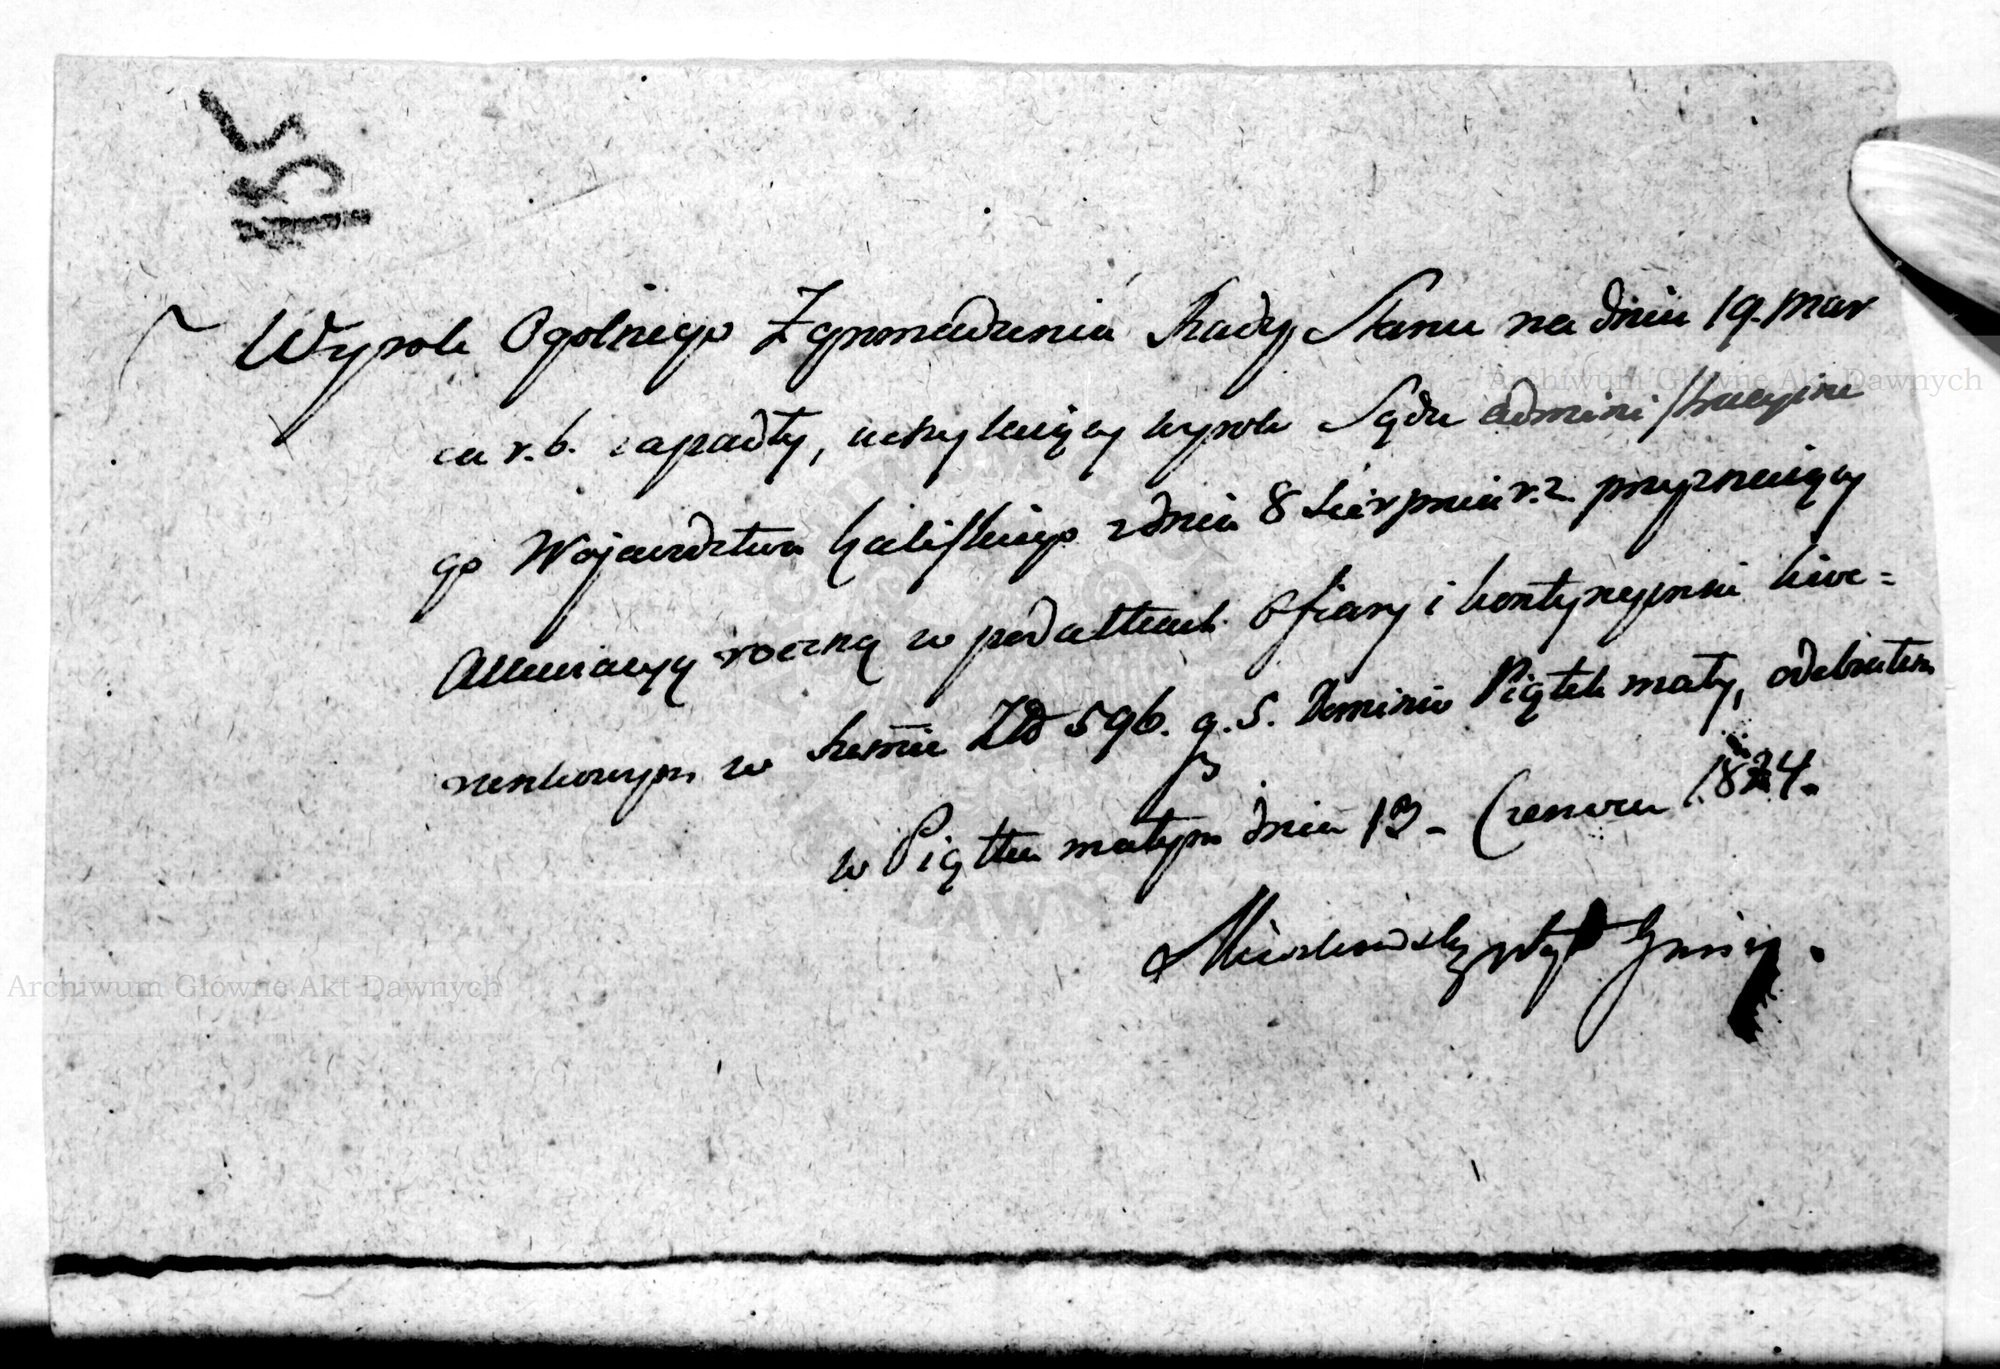 135
Wyrok Ogolnego Zgromadzenia Rady Stanu na dniu 19. Mar
ca r. b. zapadły, uchylaiący wyrok Sądu administracyine
go Woiewdztwa Kaliskiego z dnia 8 Sierpnia r. z. przyznaiący
Allewiacyą roczną w podatkach Ofiary i kontyngensu liwe=
runkowym w summie Złł 596. g. 5. Dominio Piątek mały, odebrałem
w Piątku małym dnia 13. Czerwca 1824.
Archiwum Główne Akt Dawnych
Archiwum Główne Akt Dawnych